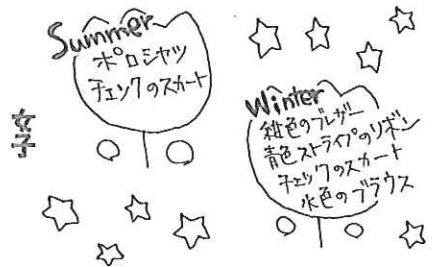 Summer
ポロシャツ
チェックのスカート
女子
Winter
紺色のブレザー
青色ストライプのリボン
チェックのスカート
水色のブラウス